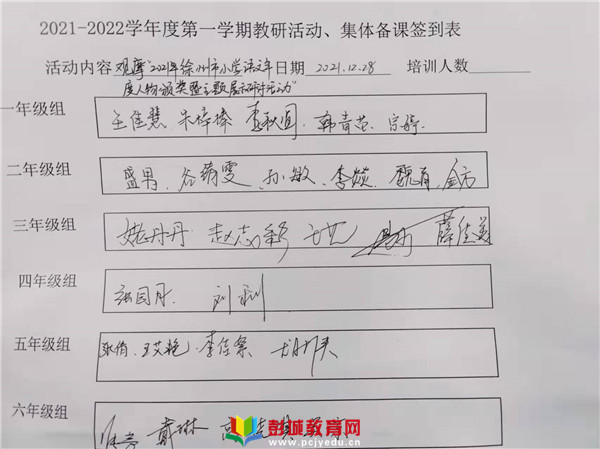 2021-2022学年度第一学期教研活动、集体备课签到表
活动内容 观摩“2021年徐州市小学语文年 日期 2021.12.28 培训人数
度人物颁奖暨主题展示研讨活动”
一年级组 王佳慧 朱婷婷 李秋圆 韩青苗 宗婷
二年级组 盛男 谷晴雯 孙敏 李燚 魏 金方
三年级组 姚丹丹 赵志彩 薛佳美
四年级组 张园月 刘利
五年级组 张俏 王艾艳 李佳
六年级组 戴琳
彭城教育网
www.pcjyedu.cn